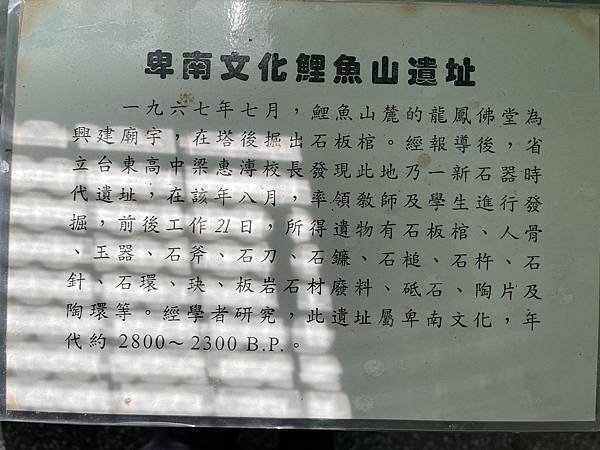 卑南文化鯉魚山遺址
一九六七年七月，鯉魚山麓的龍鳳佛堂為
興建廟宇，在塔後掘出石板棺。經報導後，省
立台東高中梁惠溥校長發現此地乃一新石器時
代遺址，在該年八月，率領教師及學生進行發
掘，前後工作21日，所得遺物有石板棺、人骨
、玉器、石斧、石刀、石鐮、石槌、石杵、石
針、石環、玦、板岩石材廢料、砥石、陶片及
陶環等。經學者研究，此遺址屬卑南文化，年
代約 2800～2300 B.P.。